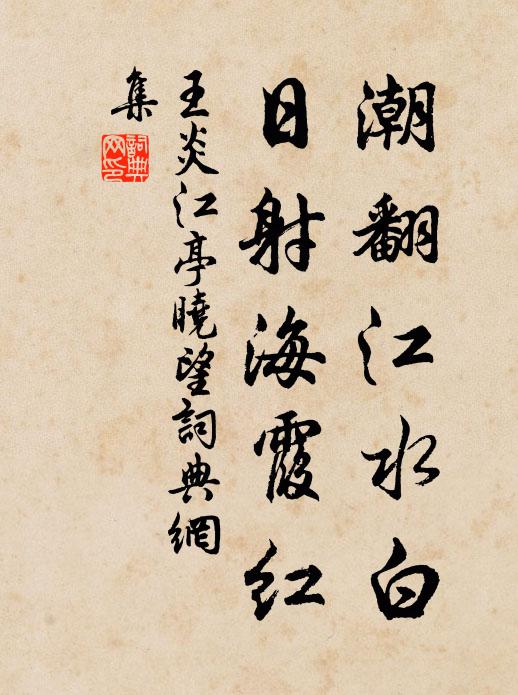 潮翻江水白
日射海霞紅
王炎江亭曉望詞典網
集
詞典
网印